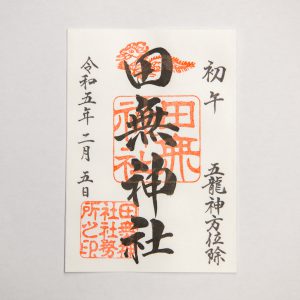 初午
五龍神方位除
田無神社
田無
神社
令和五年二月五日
田無神
社社務
所之印